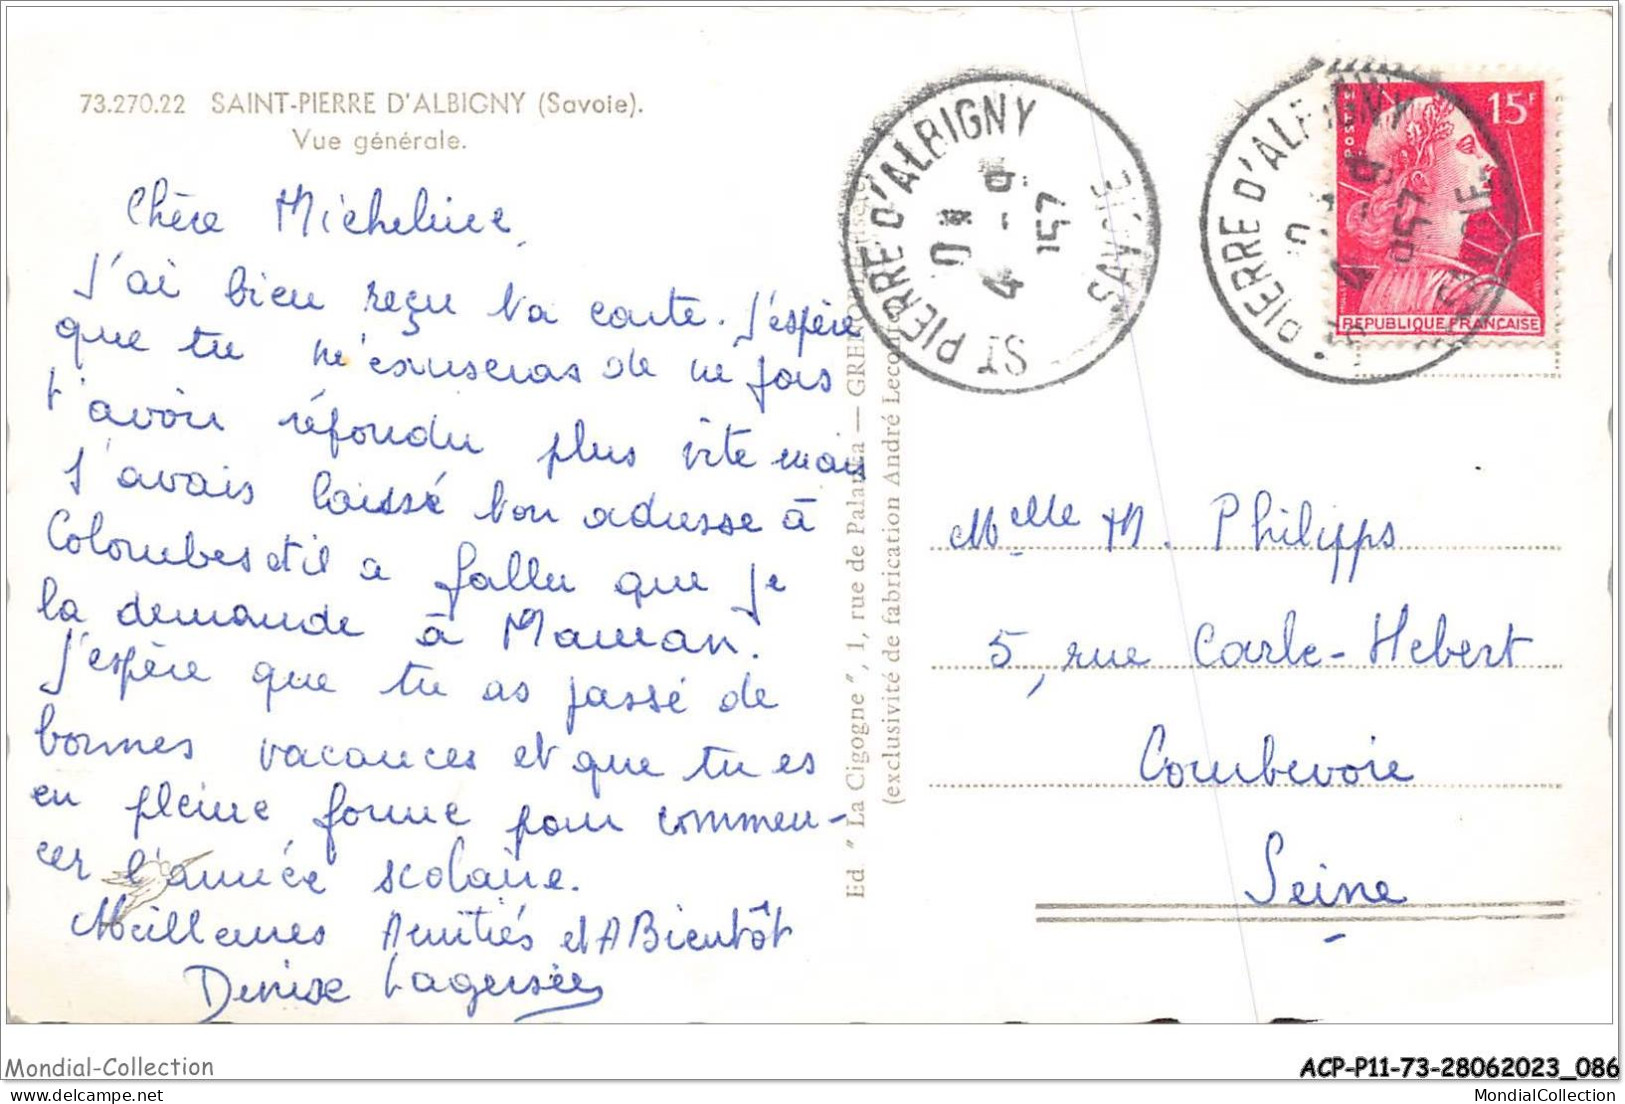 73.270.22 SAINT-PIERRE D'ALBIGNY (Savoie).
Vue générale.
Chère Micheline,
J'ai bien reçu ta carte. J'espère
que tu m'excuseras de ne pas
t'avoir répondu plus vite mais
j'avais laissé ton adresse à
Colombes et il a fallu que je
la demande à Maman.
J'espère que tu as passé de
bonnes vacances et que tu es
en pleine forme pour commen-
cer l'année scolaire.
Meilleures Amitiés et A Bientôt
Denise
Ed "La Cigogne", 1, rue de Palanka — GRENOBLE
(exclusivité de fabrication André Leconte
ST PIERRE D'ALBIGNY
4 - 9
1957
SAVOIE
ST PIERRE D'ALBIGNY
4 - 9
1957
SAVOIE
POSTES
15F
REPUBLIQUE FRANCAISE
Melle M. Philipps
5, rue Carle-Hebert
Courbevoie
Seine
Mondial-Collection
ACP-P11-73-28062023_086
www.delcampe.net
MondialCollection